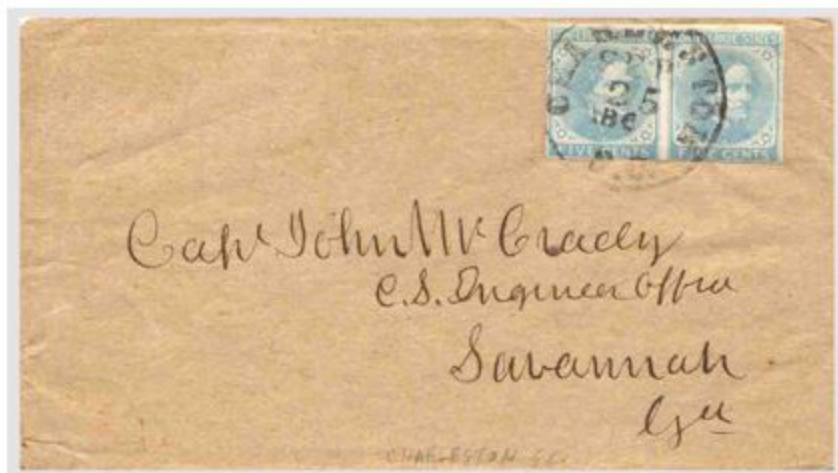 CHARLESTON
25
186
FIVE CENTS FIVE CENTS
Capt John McCrady
C.S. Engineer Office
Savannah
Ga
CHARLESTON SC.